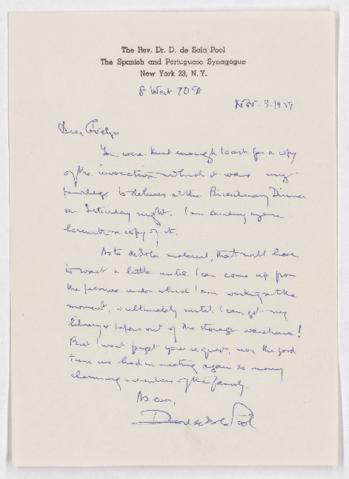 The Rev. Dr. D. de Sola Pool
The Spanish and Portuguese Synagogue
New York 23, N. Y.
8 West 70
Nov. 3. 1959
Dear Evelyn
You were kind enough to ask for a copy
of the invocation which it was my
privilege to deliver at the Bicentenary Dinner
on Saturday night. I am sending you
herewith a copy of it.
As to de Sola material, that will have
to wait a little until I can come up from
the pressures under which I am working at the
moment, & ultimately until I can get my
library & papers out of the storage warehouse!
But I won't forget your request, nor the good
time we had in meeting again so many
charming members of the family.
As ever,
David de Sola Pool